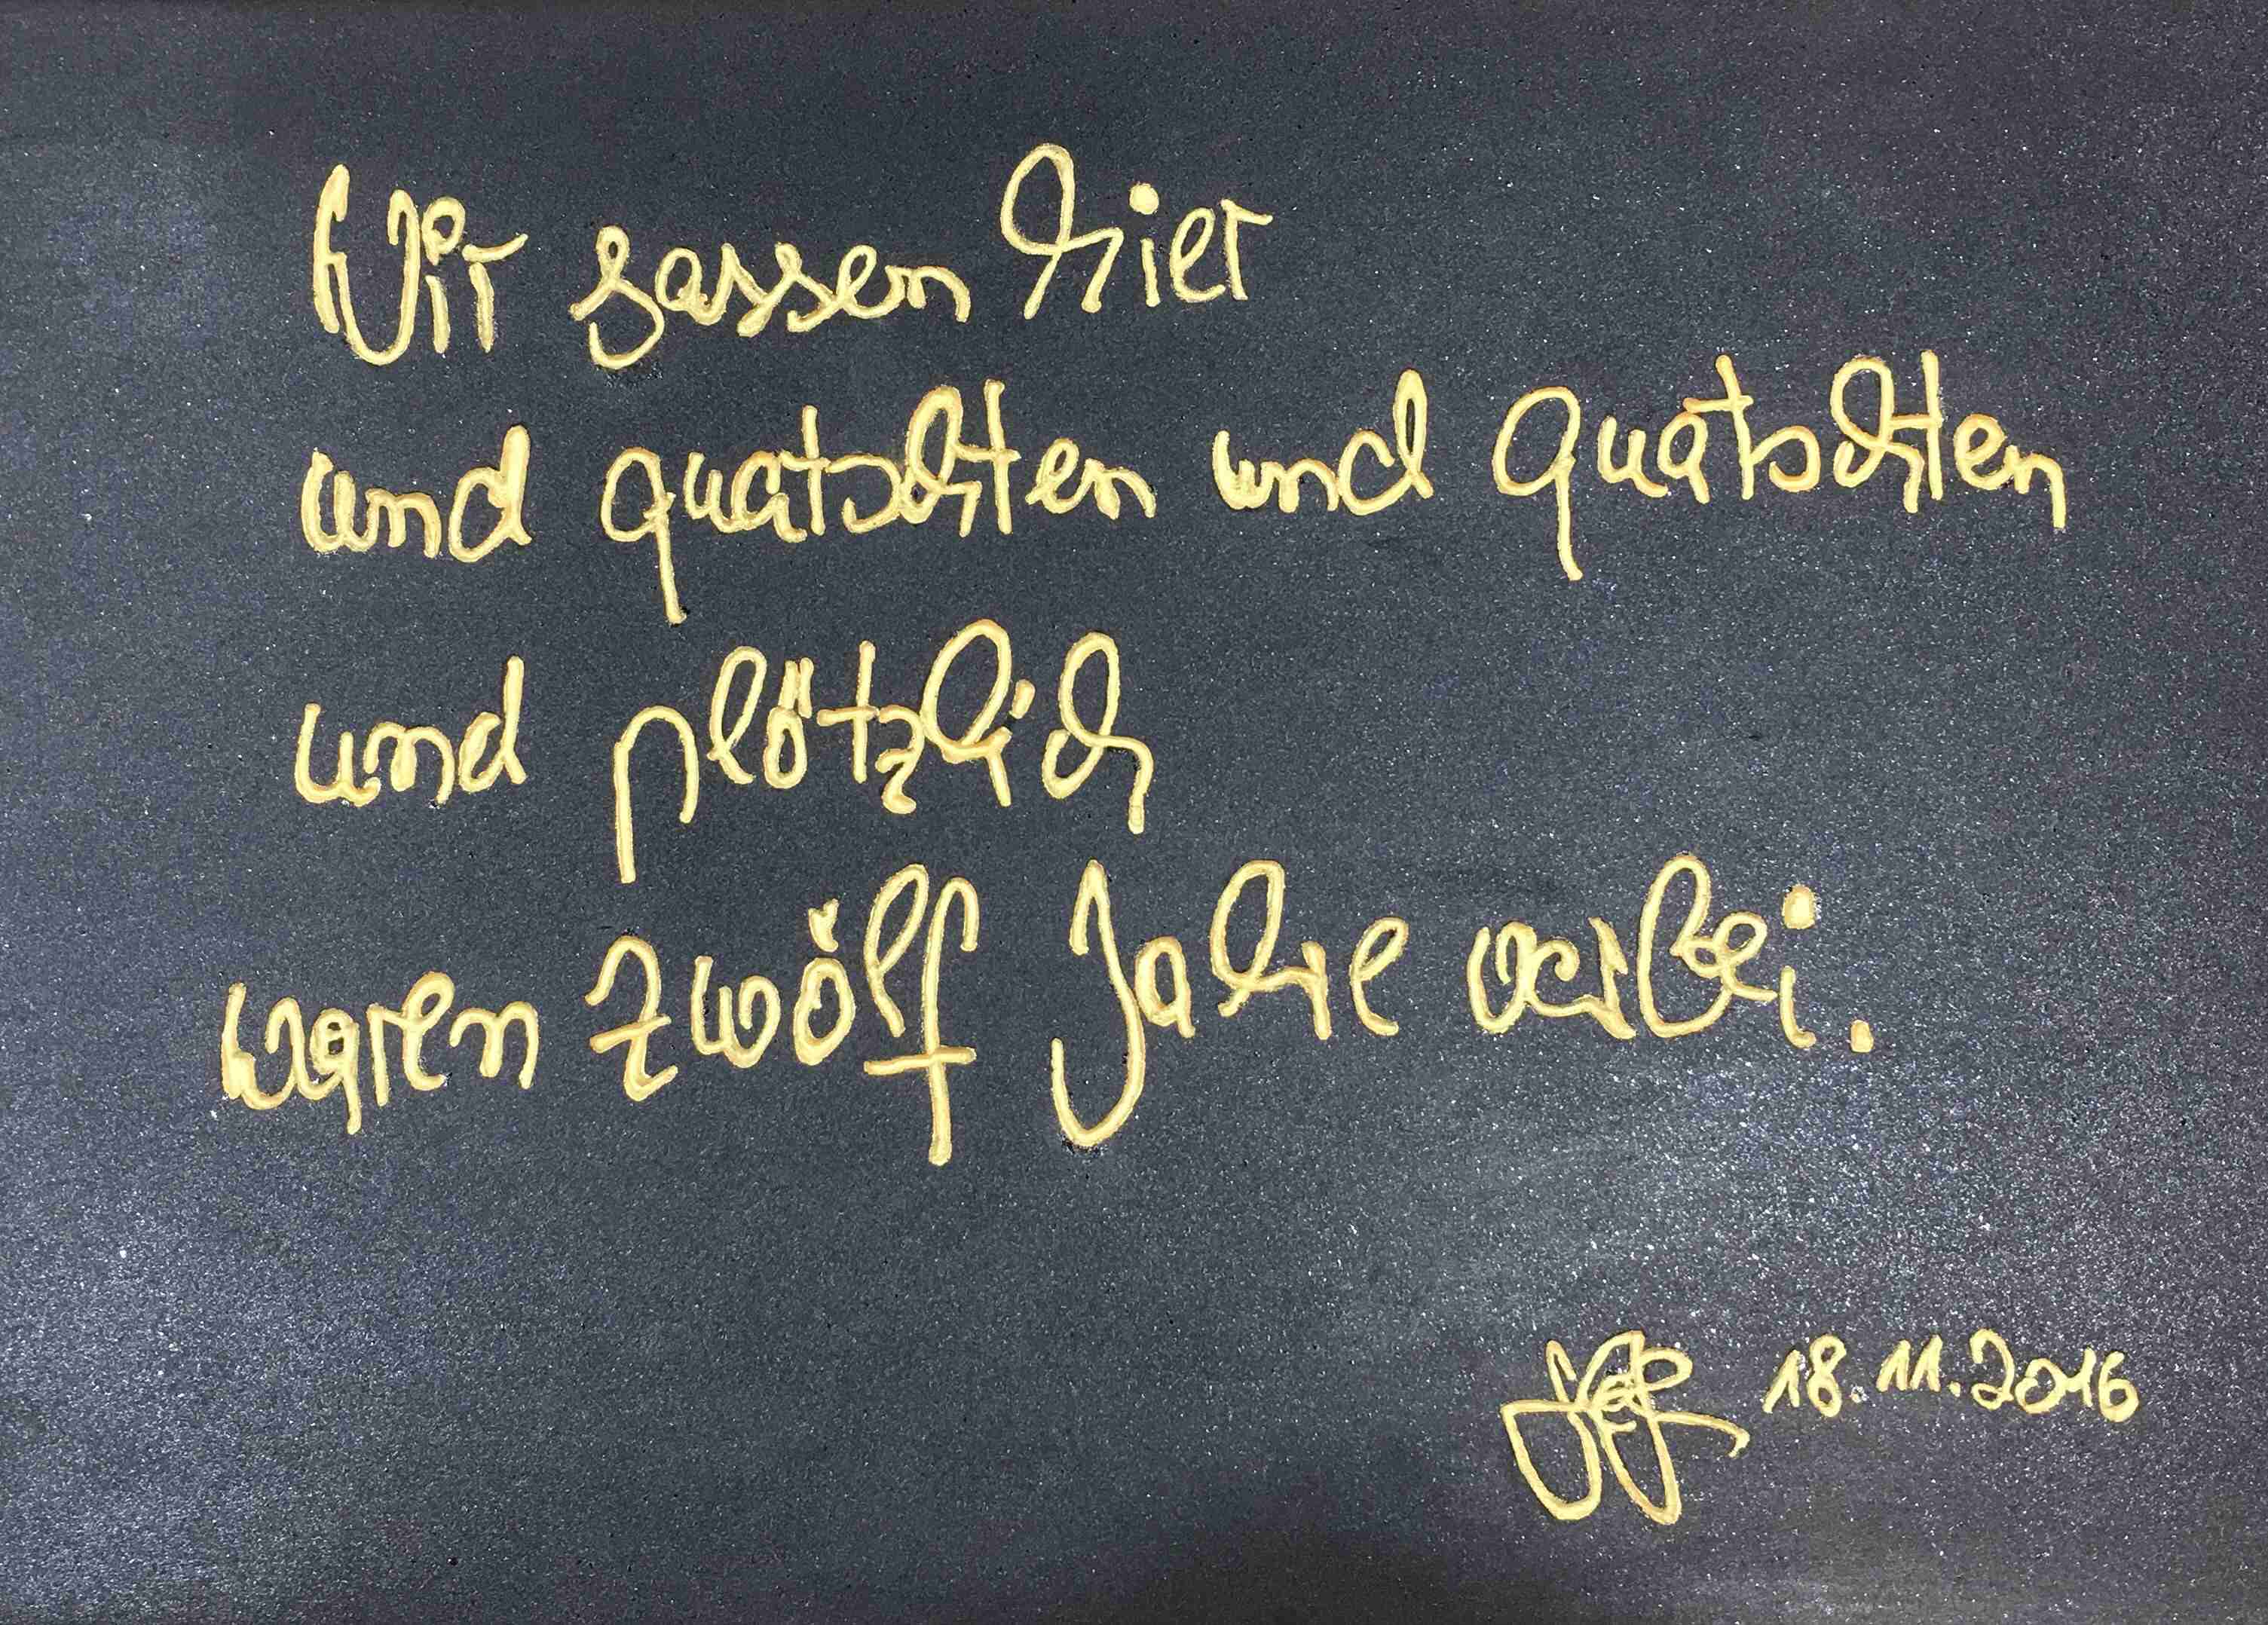 Wir sassen hier
und quatschten und quatschten
und plötzlich
waren zwölf Jahre vorbei.
18.11.2016